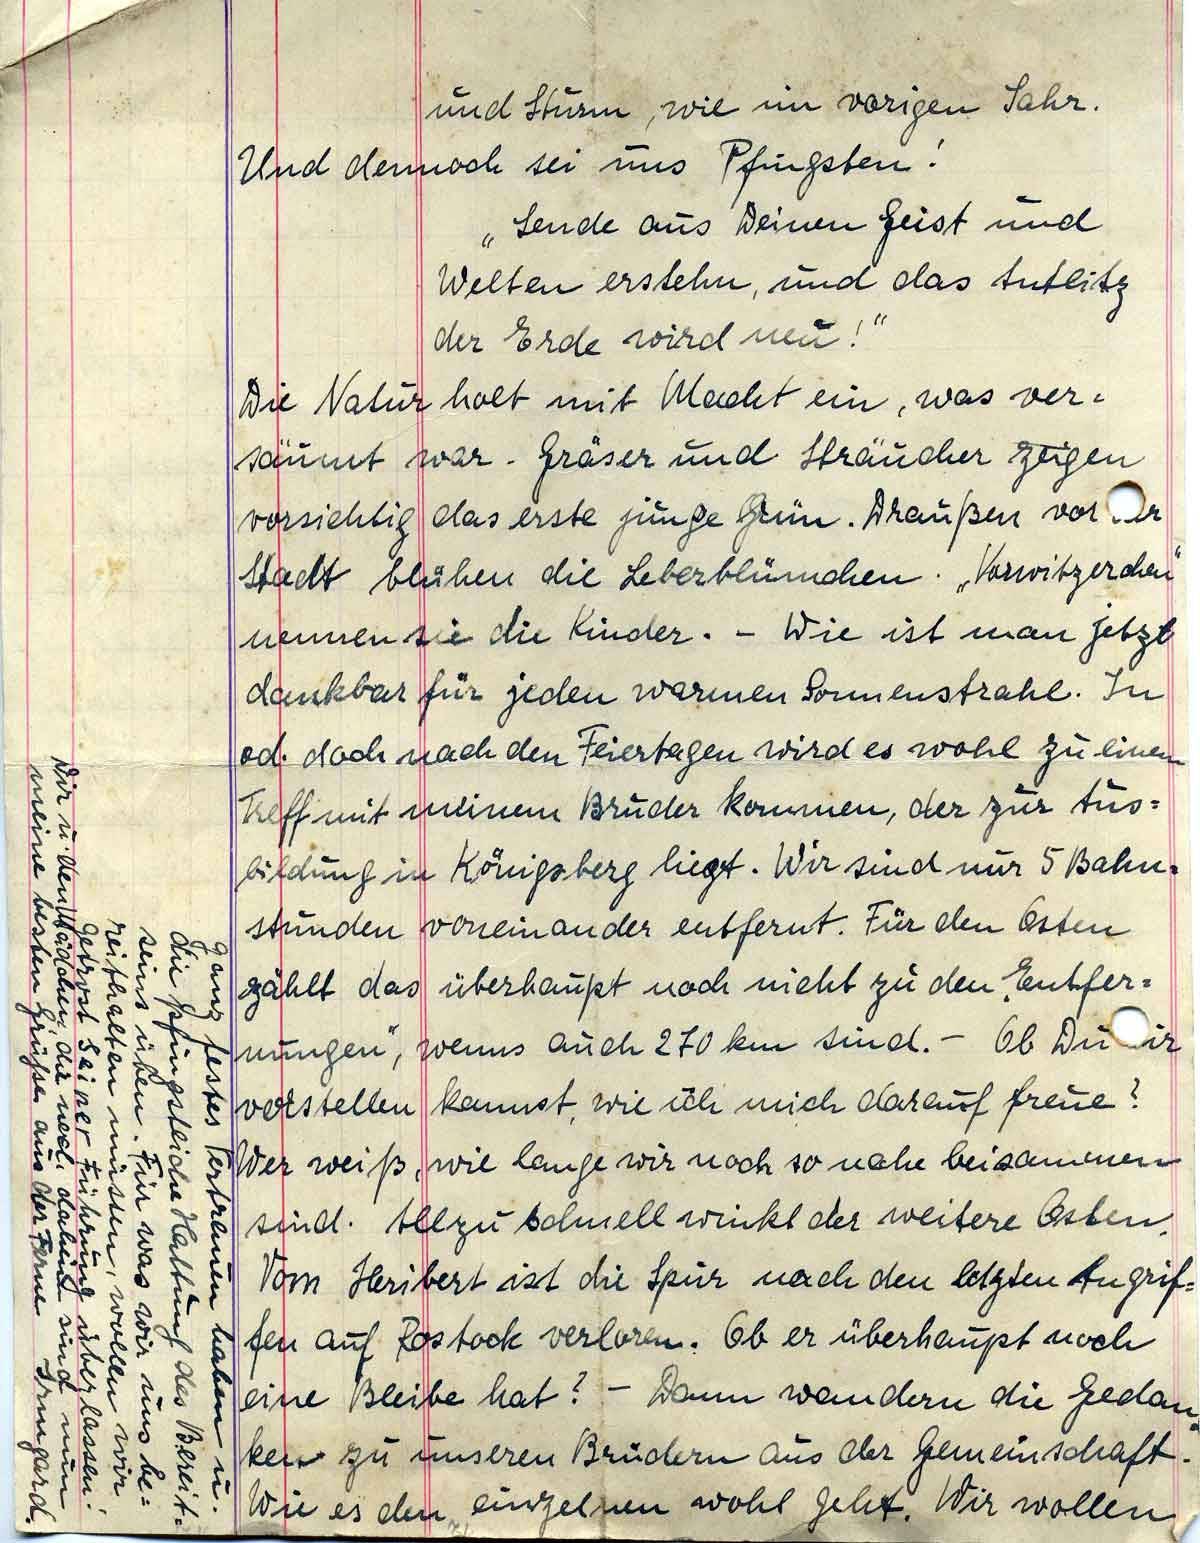 und Sturm, wie im vorigen Jahr.
Und dennoch sei uns Pfingsten!
„Sende aus Deinen Geist und
Welten erstehn, und das Antlitz
der Erde wird neu!“
Die Natur holt mit Macht ein, was ver=
säumt war. Gräser und Sträucher zeigen
vorsichtig das erste junge Grün. Draußen vor der
Stadt blühen die Leberblümchen. „Vorwitzerchen“
nennen sie die Kinder. – Wie ist man jetzt
dankbar für jeden warmen Sonnenstrahl. In
od. doch nach den Feiertagen wird es wohl zu einem
Treff mit meinem Bruder kommen, der zur Aus=
bildung in Königsberg liegt. Wir sind nur 5 Bahn=
stunden voneinander entfernt. Für den Osten
zählt das überhaupt noch nicht zu den „Entfer=
nungen“, wenns auch 270 km sind. – Ob Du ir
vorstellen kannst, wie ich mich darauf freue?
Wer weiß, wie lange wir noch so nahe beisammen
sind. Allzu schnell winkt der weitere Osten.
Vom Heribert ist die Spur nach den letzten Angrif=
fen auf Rostock verloren. Ob er überhaupt noch
eine Bleibe hat? – Dann wandern die Gedan=
ken zu unseren Brüdern aus der Gemeinschaft.
Wie es den einzelnen wohl geht. Wir wollen
ganz festes Vertrauen haben u.
die pfingstliche Haltung des Bereit-
seins üben. Für was wir uns be=
reithalten müssen, wollen wir
getrost Seiner Führung überlassen!
Dir u. den Mädchen, die noch daheim sind nun
meine besten Grüße aus der Ferne Irmgard.